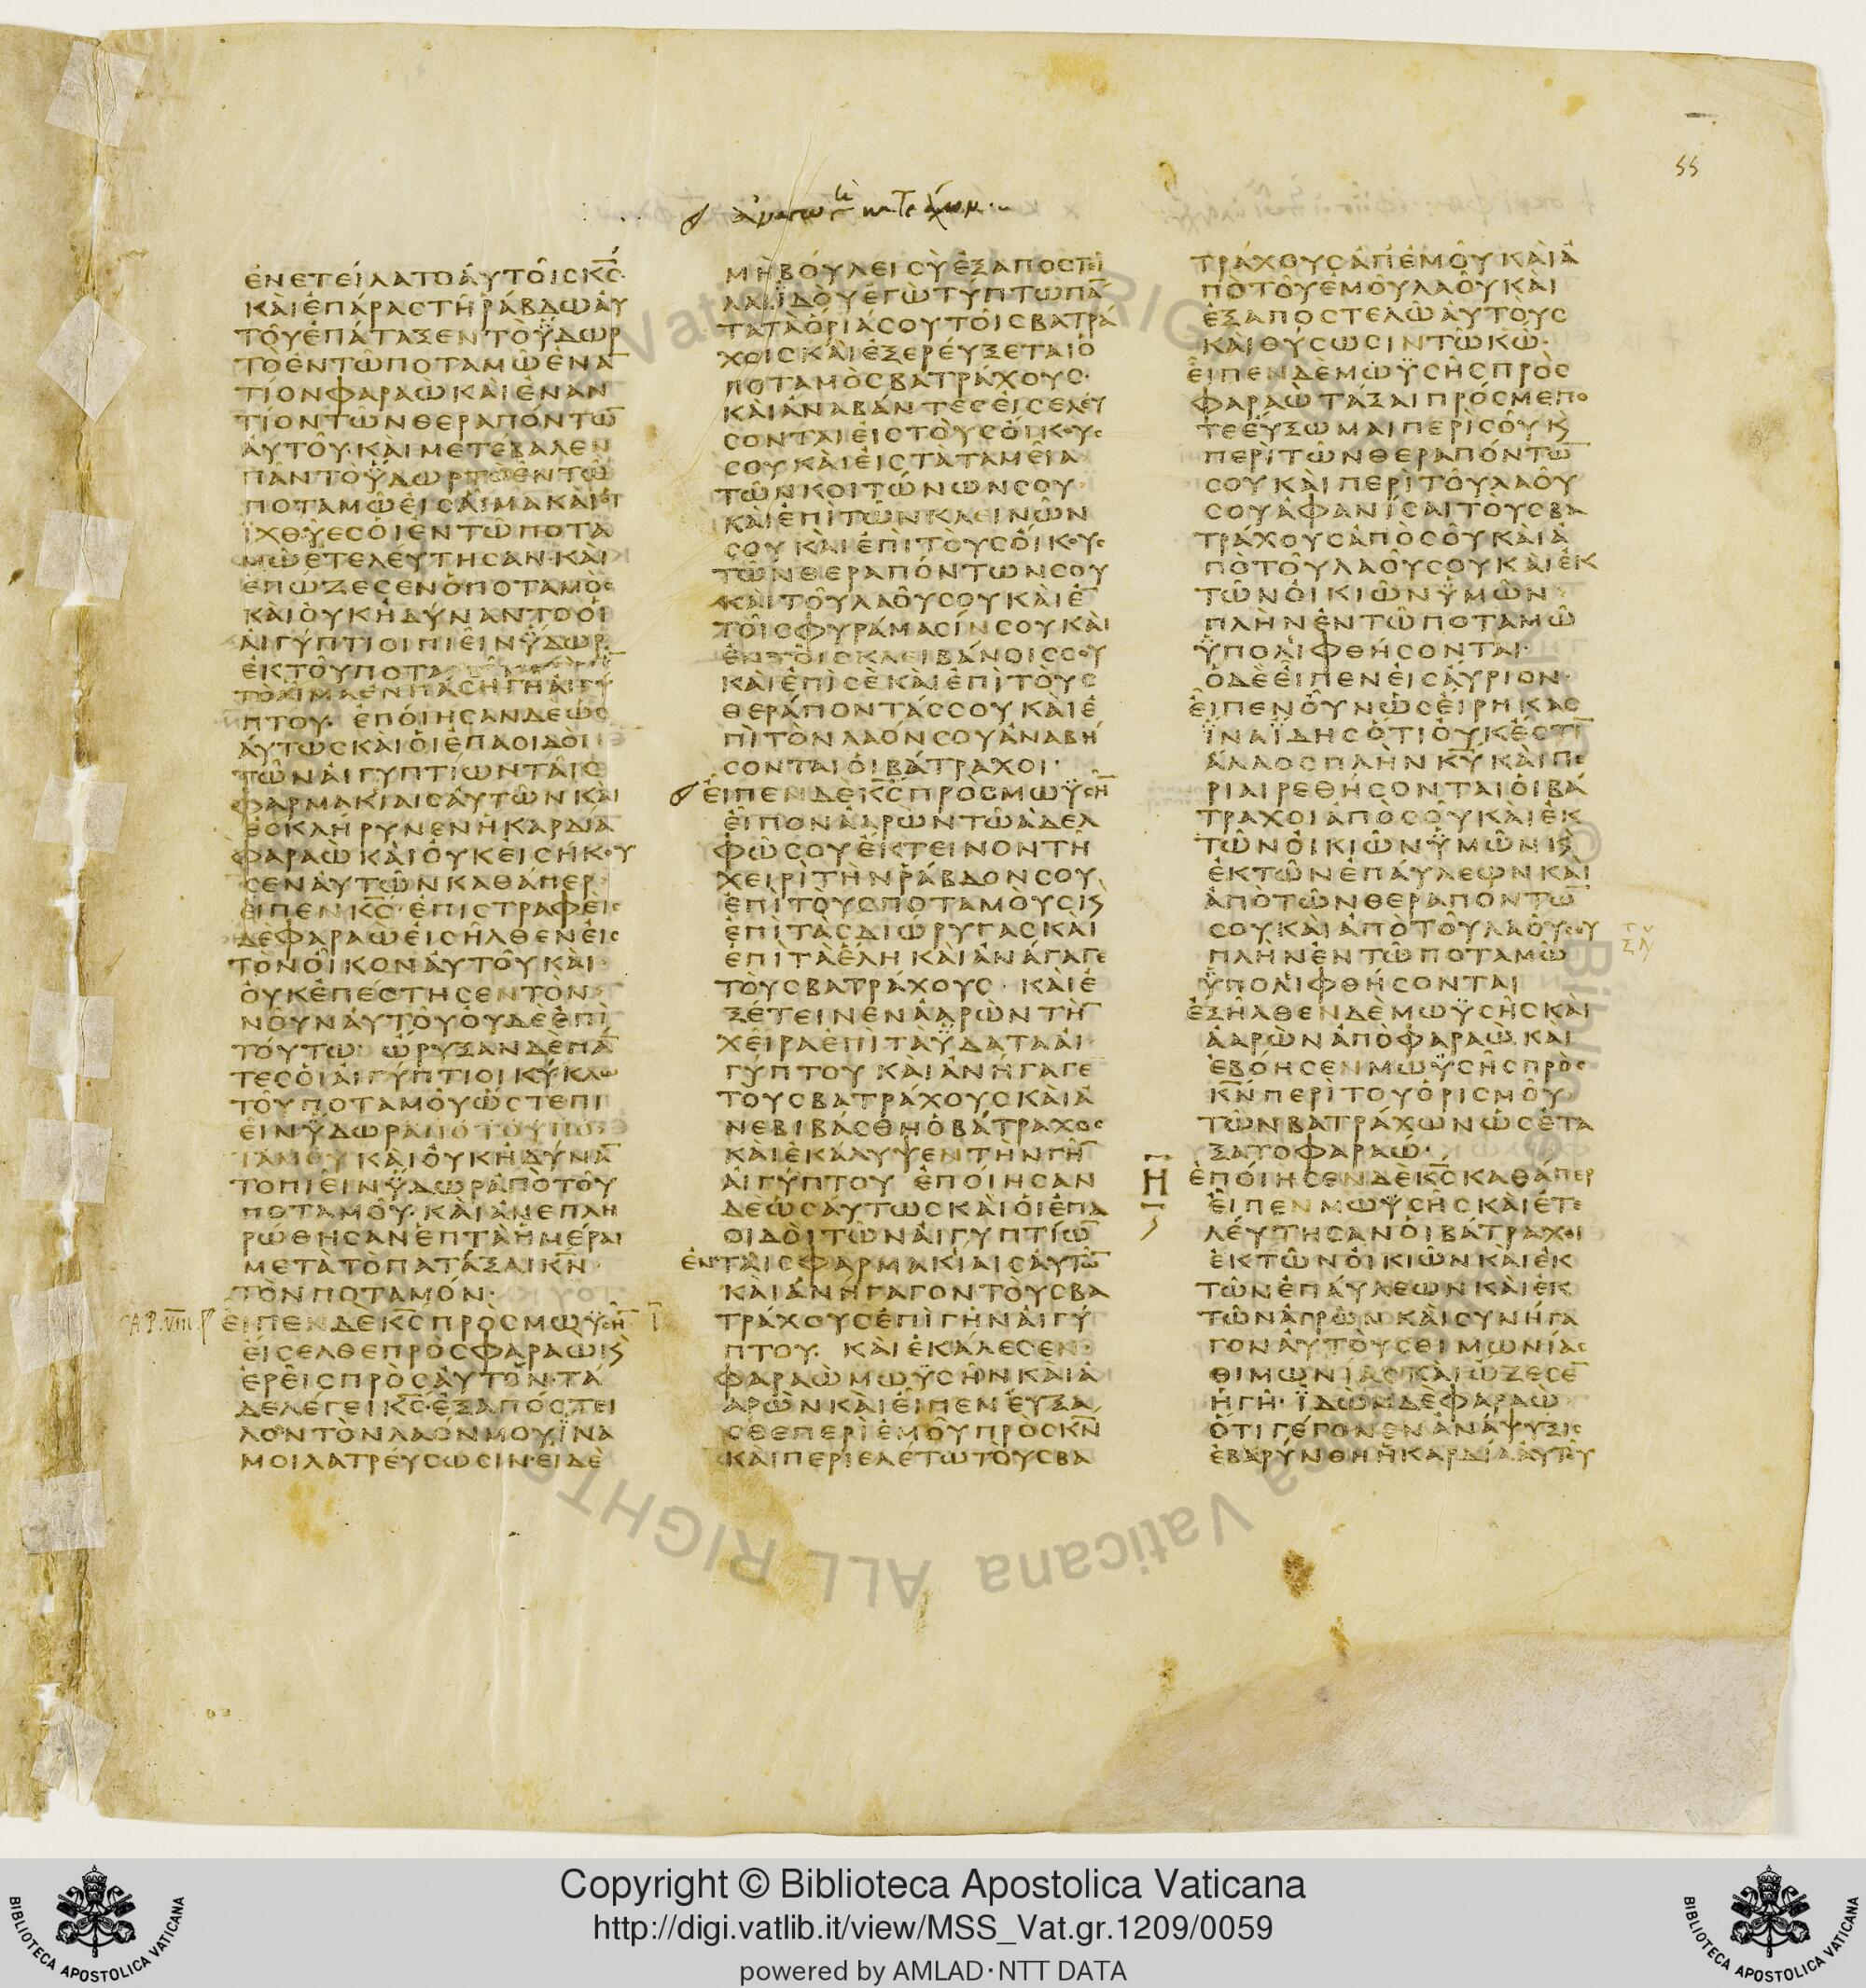 55
ἐνετείλατο ἀυτοῖς κ̅ς̅·
κὰι ἐπάρας τῆ ῥάβδω ἀυ
τόυ ἐπάταξεν τὸ ὕδωρ
τὸ ἐν τῶ ποταμῶ ἐνα̅
τίον φαραὼ κὰι ἐναν
τίον τῶν θεραπόντω̅
ἀυτόυ· κὰι μετέβαλεν
πᾶν τὸ ὕδωρ τὸ ἐν τῶ
ποταμῶ ἐις ἁῖμα κὰι ὁι
ἰχθύες ὁι ἐν τῶ ποτα
μῶ ἐτελέυτησαν· κὰι
ἐπώζεσεν ὁ ποταμὸς
κὰι ὀυκ ἠδύναντο ὁι
ἀιγύπτιοι πιεῖν ὕδωρ
ἐκ τοῦ ποτα
τὸ ἁῖμα ἐν πάση γῆ ἀιγύ
πτου· ἐπόιησαν δὲ ὡς
ἀύτως κὰι ὁι ἐπαοιδὸι
τῶν ἀιγυπτίων τᾶις
φαρμακίαις ἀυτῶν κὰι
ἐσκλήρυνεν ἡ καρδία
φαραὼ κὰι ὀυκ εἰσήκου
σεν ἀυτῶν καθάπερ
εἶπεν κ̅ς̅· ἐπιστραφεὶς
δὲ φαραὼ ἐισῆλθεν ἐις
τὸν ὄικον ἀυτοῦ κὰι
ὀυκ ἐπέστησεν τὸν
νοῦν ἀυτοῦ ὀυδὲ ἐπὶ
τόυτω· ὤρυξαν δὲ πά̅
τες ὁι ἀιγύπτιοι κύκλω
τόυ ποταμόυ ὥστε πι
εῖν ὕδωρ ἀπὸ τόυ πο
ταμόυ κὰι ὀυκ ἠδύνα̅
το πιεῖν ὕδωρ ἀπὸ τόυ
ποταμόυ· κὰι ἀνεπλη
ρώθησαν ἑπτὰ ἡμέραι
μετὰ τὸ πατάξαι κ̅ν̅
τὸν ποταμόν·
CAP. VIII. εἶπεν δὲ κ̅ς̅ πρὸς μωϋσῆ̅
εἴσελθε πρὸς φαραὼ κ̀
ἐρεῖς πρὸς ἀυτόν· τά
δε λέγει κ̅ς̅· ἐξαπόστει
λον τὸν λαόν μου ἵνα
μοι λατρέυσωσιν· ἐι δὲ
μὴ βόυλει σὺ ἐξαποστεῖ
λαι ἰδὸυ ἐγὼ τύπτω πά̅
τα τὰ ὅριά σου τόις βατρά
χοις κὰι ἐξερέυξεται ὁ
ποταμὸς βατράχους·
κὰι ἀναβάντες ἐισελέυ
σονται ἐις τὸυς ὄικους
σου κὰι ἐις τὰ ταμεῖα
τῶν κοιτώνων σου
κὰι ἐπὶ τῶν κλεινῶν
σου κὰι ἐπὶ τόυς ὄικους
τῶν θεραπόντων σου
κὰι τοῦ λαοῦ σου κὰι ἐ̅
τοῖς φυράμασίν σου κὰι
ἐν τοῖς κλειβάνοις σου
κὰι ἐπὶ σὲ κὰι ἐπὶ τὸυς
θεράποντάς σου κὰι ἐ
πὶ τὸν λαόν σου ἀναβή
σονται ὁι βάτραχοι·
εἶπεν δὲ κ̅ς̅ πρὸς μωϋσῆ̅
εἶπον ἀαρὼν τῶ ἀδελ
φῶ σου ἔκτεινον τῆ
χειρὶ τὴν ῥάβδον σου
ἐπὶ τὸυς ποταμὸυς κ̀
ἐπὶ τὰς διώρυγας κὰι
ἐπὶ τὰ ἕλη κὰι ἀνάγαγε
τὸυς βατράχους· κὰι ἐ
ξέτεινεν ἀαρὼν τὴ̅
χεῖρα ἐπὶ τὰ ὕδατα ἀι
γύπτου κὰι ἀνήγαγε
τους βατράχους κὰι ἀ
νεβιβάσθη ὁ βάτραχος
κὰι ἐκάλυψεν τὴν γῆ̅
ἀιγύπτου ἐπόιησαν
δὲ ὡσάυτως κὰι ὁι ἐπα
οιδὸι τῶν ἀιγυπτίω̅
ἐν τᾶις φαρμακίαις ἀυτῶ̅
κὰι ἀνήγαγον τὸυς βα
τράχους ἐπὶ γῆν ἀιγύ
πτου· κὰι ἐκάλεσεν
φαραὼ μωϋσῆν κὰι ἀ
αρὼν κὰι εἶπεν ἔυξα
σθε περὶ ἐμοῦ πρὸς κ̅ν̅
κὰι περιελέτω τὸυς βα
τράχους ἀπ' ἐμοῦ κὰι ἀ
πὸ τοῦ ἐμοῦ λαοῦ κὰι
ἐξαποστελῶ ἀυτὸυς
κὰι θύσωσιν τῶ κ̅ω̅·
εἶπεν δὲ μωϋσῆς πρὸς
φαραὼ τάξαι πρός με πο
τε ἔυξωμαι περὶ σοῦ κ̀
περὶ τῶν θεραπόντω̅
σου κὰι περὶ τοῦ λαοῦ
σου ἀφανίσαι τὸυς βα
τράχους ἀπὸ σοῦ κὰι ἀ
πὸ τοῦ λαοῦ σου κὰι ἐκ
τῶν ὀικιῶν ὑμῶν·
πλὴν ἐν τῶ ποταμῶ
ὑπολιφθήσονται·
ὁ δὲ εἶπεν ἐις ἄυριον·
εἶπεν ὀῦν ὡς ἔιρηκας
ἵνα ἴδης ὅτι ὀυκ ἔστι̅
ἄλλος πλὴν κ̅υ̅ κὰι πε
ριαιρεθήσονται ὁι βά
τραχοι ἀπὸ σοῦ κὰι ἐκ
τῶν ὀικιῶν ὑμῶν κ̀
ἐκ τῶν ἐπάυλεων κὰι
ἀπὸ τῶν θεραπόντω̅
σου κὰι ἀπὸ τοῦ λαοῦ σου
πλὴν ἐν τῶ ποταμῶ
ὑπολιφθήσονται
ἐξῆλθεν δὲ μωϋσῆς κὰι
ἀαρὼν ἀπὸ φαραὼ κὰι
ἐβόησεν μωϋσῆς πρὸς
κ̅ν̅ περὶ του ὁρισμοῦ
τῶν βατράχων ὡς ἐτά
ξατο φαραώ·
Η ἐπόιησεν δὲ κ̅ς̅ καθάπερ
εἶπεν μωϋσῆς κὰι ἐτε
λέυτησαν ὁι βάτραχοι
ἐκ τῶν ὀικιῶν κὰι ἐκ
τῶν ἐπάυλεων κὰι ἐκ
τῶν ἀγρῶν κὰι συνήγα
γον ἀυτὸυς θιμωνίας
θιμωνίας κὰι ὤζεσε̅
ἡ γῆ· ἰδὼν δὲ φαραὼ
ὅτι γέγονεν ἀνάψυξις
ἐβαρύνθη ἡ καρδία ἀυτοῦ
Copyright © Biblioteca Apostolica Vaticana
http://digi.vatlib.it/view/MSS_Vat.gr.1209/0059
powered by AMLAD·NTT DATA
BIBLIOTECA APOSTOLICA VATICANA
BIBLIOTECA APOSTOLICA VATICANA